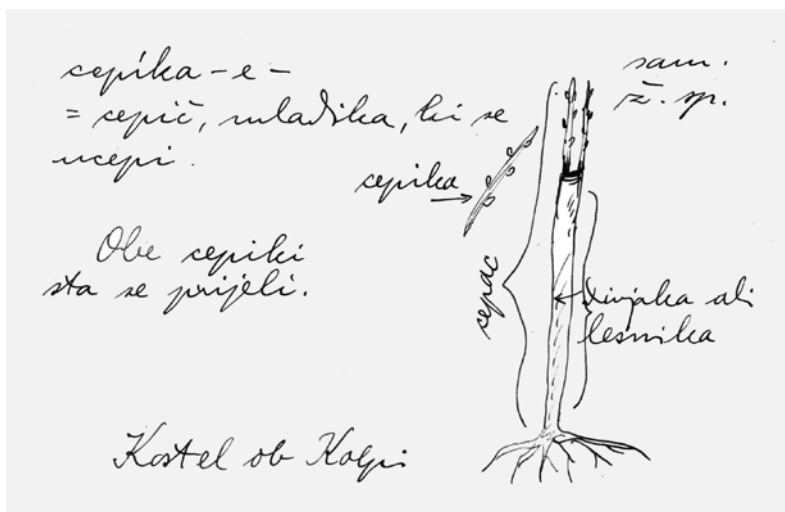 cepíka -e -
= cepič, mladika, ki se
ucepi.
sam.
ž. sp.
cepika
Obe cepiki
sta se prijeli.
cepac
divjaka ali
lesnika
Kostel ob Kolpi